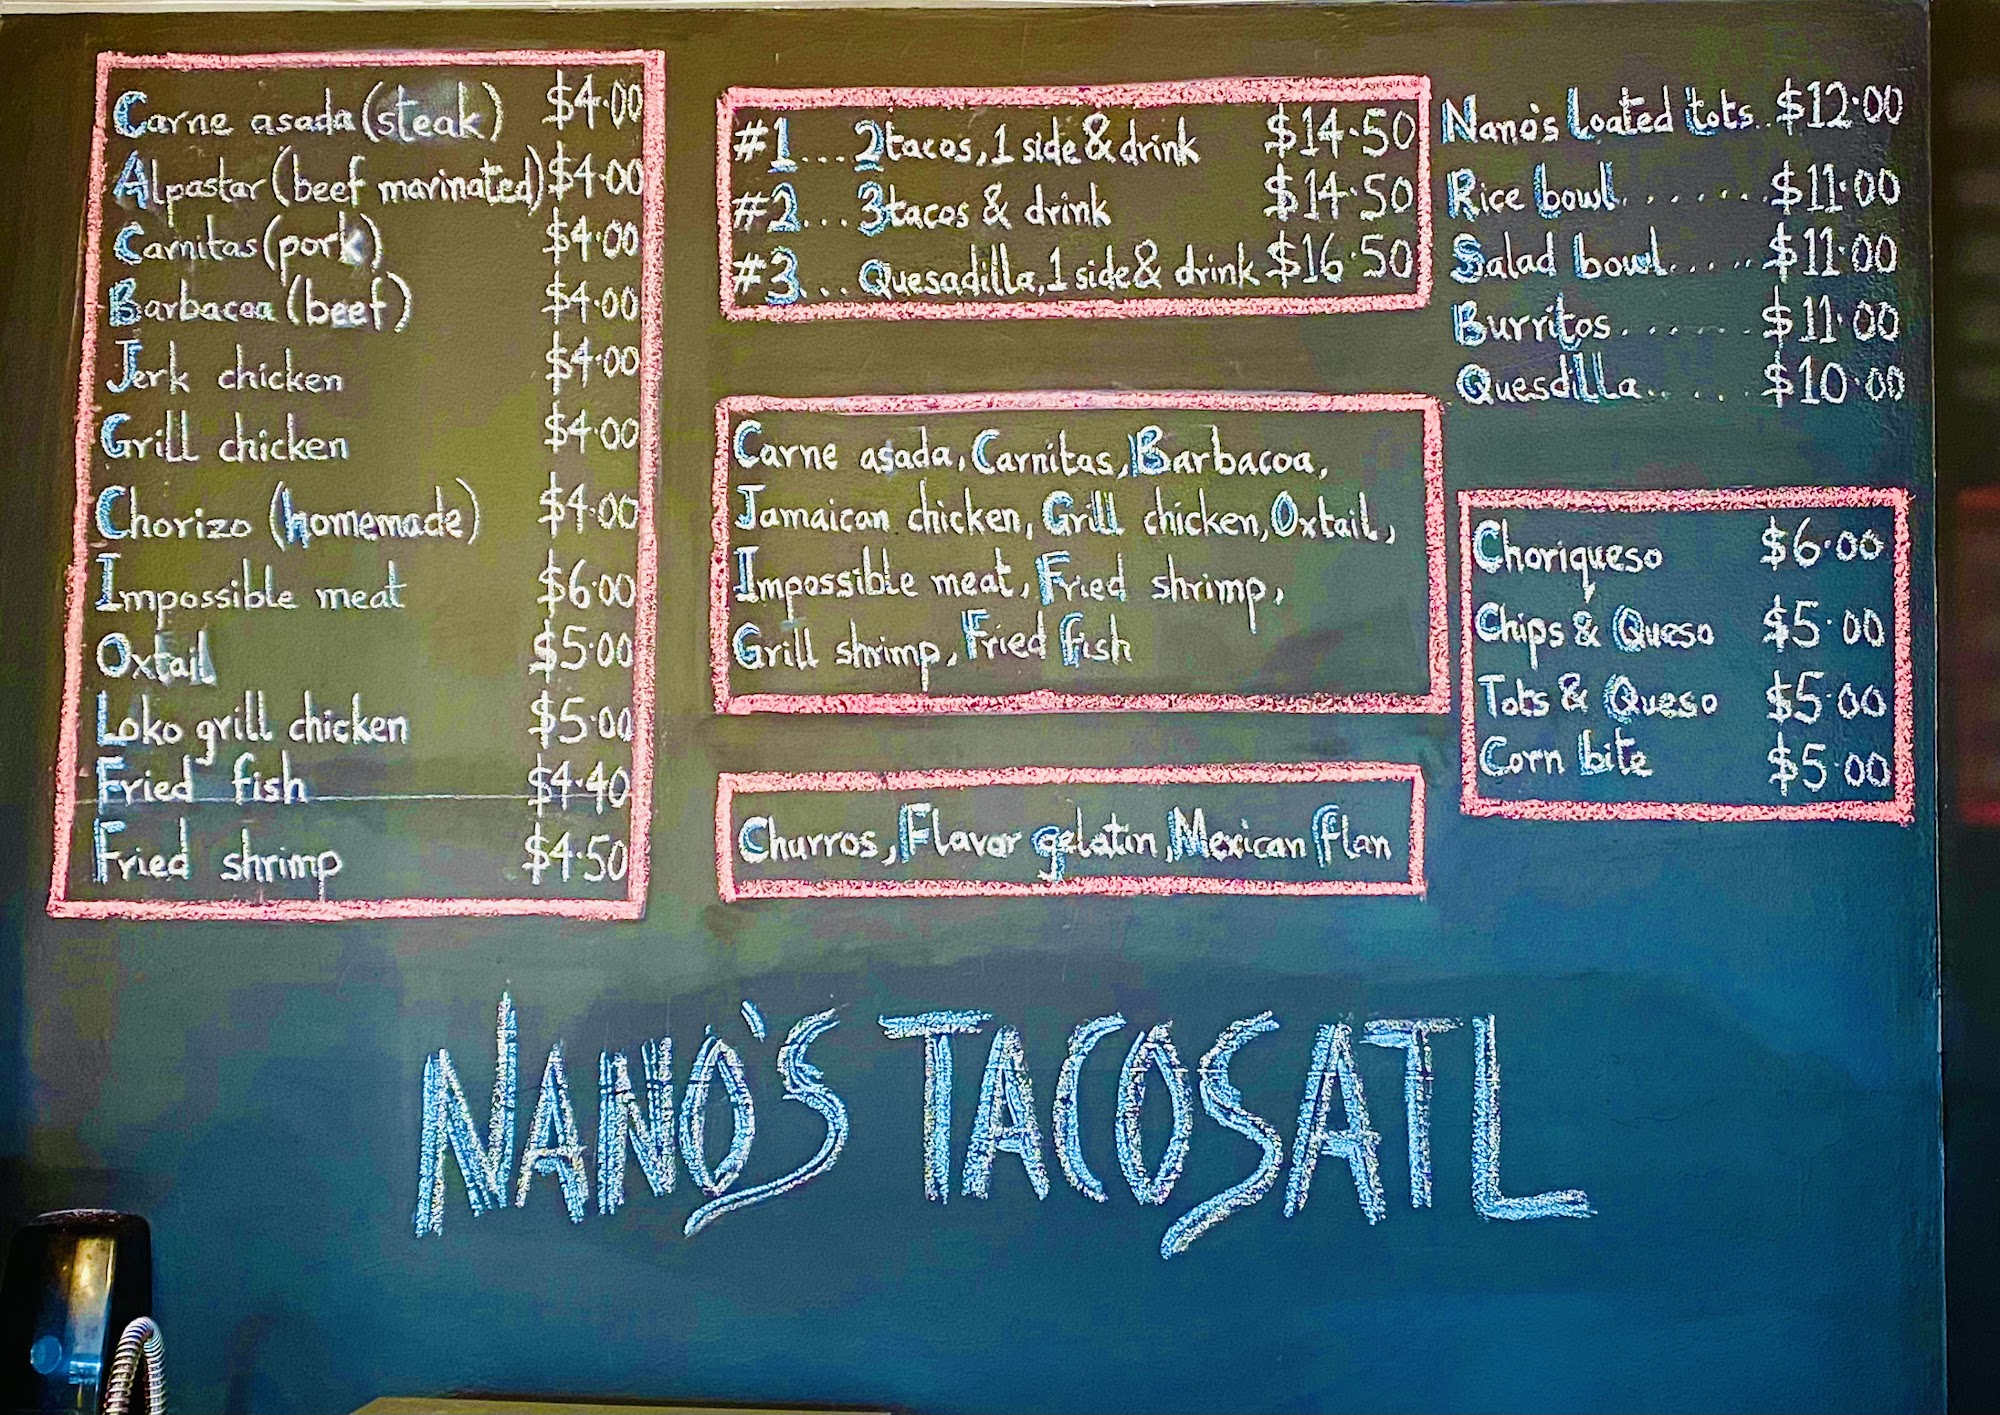 Carne asada (steak) $4.00
Alpastor (beef marinated) $4.00
Carnitas (pork) $4.00
Barbacoa (beef) $4.00
Jerk chicken $4.00
Grill chicken $4.00
Chorizo (homemade) $4.00
Impossible meat $6.00
Oxtail $5.00
Loko grill chicken $5.00
Fried fish $4.40
Fried shrimp $4.50
#1... 2 tacos, 1 side & drink $14.50
#2... 3 tacos & drink $14.50
#3... Quesadilla, 1 side & drink $16.50
Carne asada, Carnitas, Barbacoa,
Jamaican chicken, Grill chicken, Oxtail,
Impossible meat, Fried shrimp,
Grill shrimp, Fried fish
Churros, Flavor gelatin, Mexican flan
Nano's Loated tots.. $12.00
Rice bowl....... $11.00
Salad bowl..... $11.00
Burritos...... $11.00
Quesdilla..... $10.00
Choriqueso $6.00
Chips & Queso $5.00
Tots & Queso $5.00
Corn bite $5.00
NANO'S TACOSATL